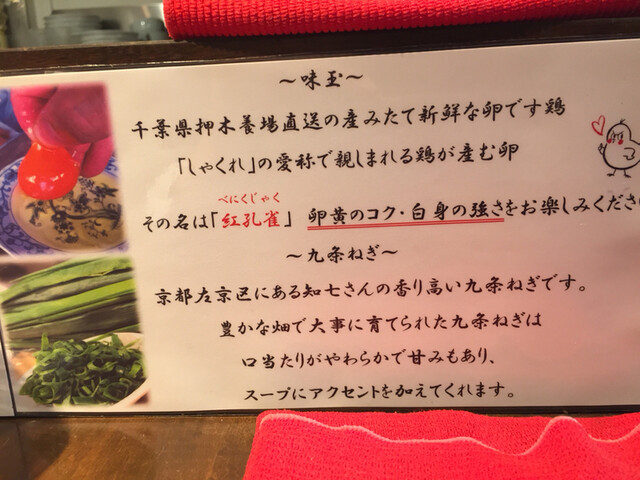 ～味玉～
千葉県押木養場直送の産みたて新鮮な卵です鶏
「しゃくれ」の愛称で親しまれる鶏が産む卵
べにくじゃく
その名は「紅孔雀」 卵黄のコク・白身の強さをお楽しみくださ
～九条ねぎ～
京都左京区にある知七さんの香り高い九条ねぎです。
豊かな畑で大事に育てられた九条ねぎは
口当たりがやわらかで甘みもあり、
スープにアクセントを加えてくれます。